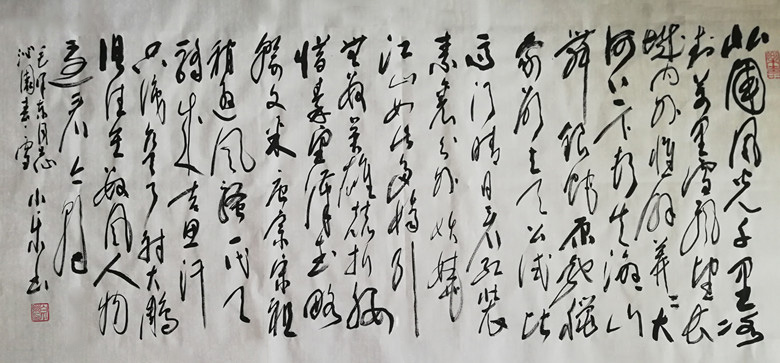 北国风光千里冰
封万里雪飘望长
城内外惟余莽莽大
河上下顿失滔滔山
舞银蛇原驰蜡
象欲与天公试比
高须晴日看红装
素裹分外妖娆
江山如此多娇引
无数英雄竞折腰
惜秦皇汉武略
输文采唐宗宋祖
稍逊风骚一代天
骄成吉思汗
只识弯弓射大雕
俱往矣数风人物
还看今朝
毛泽东同志
沁园春·雪
书